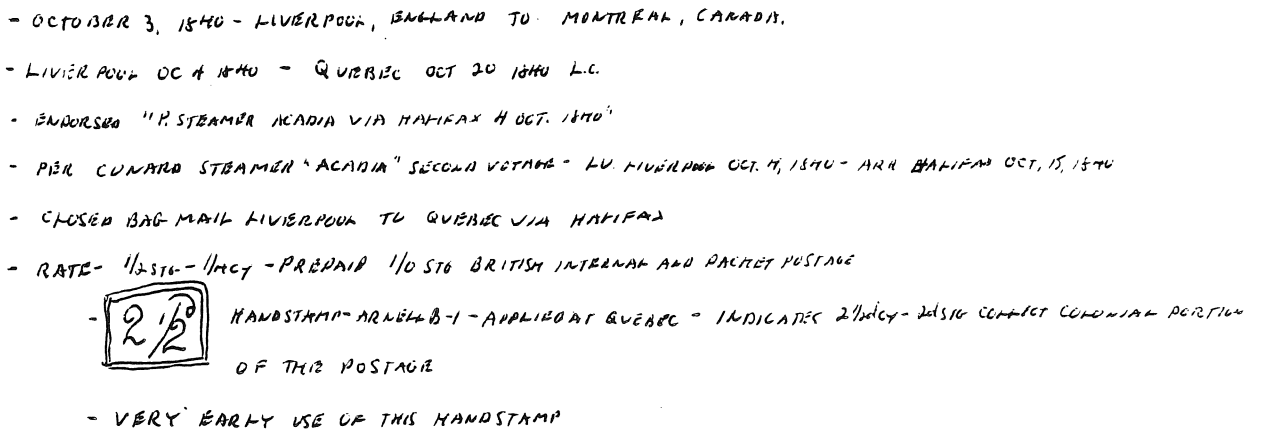 - OCTOBER 3, 1840 - LIVERPOOL, ENGLAND TO MONTREAL, CANADA.
- LIVERPOOL OC 4 1840 - QUEBEC OCT 20 1840 L.C.
- ENDORSED "P. STEAMER ACADIA VIA HALIFAX 4 OCT. 1840"
- PER CUNARD STEAMER "ACADIA" SECOND VOYAGE - LV. LIVERPOOL OCT. 4, 1840 - ARR HALIFAX OCT, 15, 1840
- CLOSED BAG MAIL LIVERPOOL TO QUEBEC VIA HALIFAX
- RATE - 1/2 STG - 1/4 CY - PREPAID 1/0 STG BRITISH INTERNAL AND PACKET POSTAGE
- 2 1/2d HANDSTAMP - ARNELL B-1 - APPLIED AT QUEBEC - INDICATES 2 1/2d CY - 2d STG COLLECT COLONIAL PORTION
OF THE POSTAGE
- VERY EARLY USE OF THIS HANDSTAMP